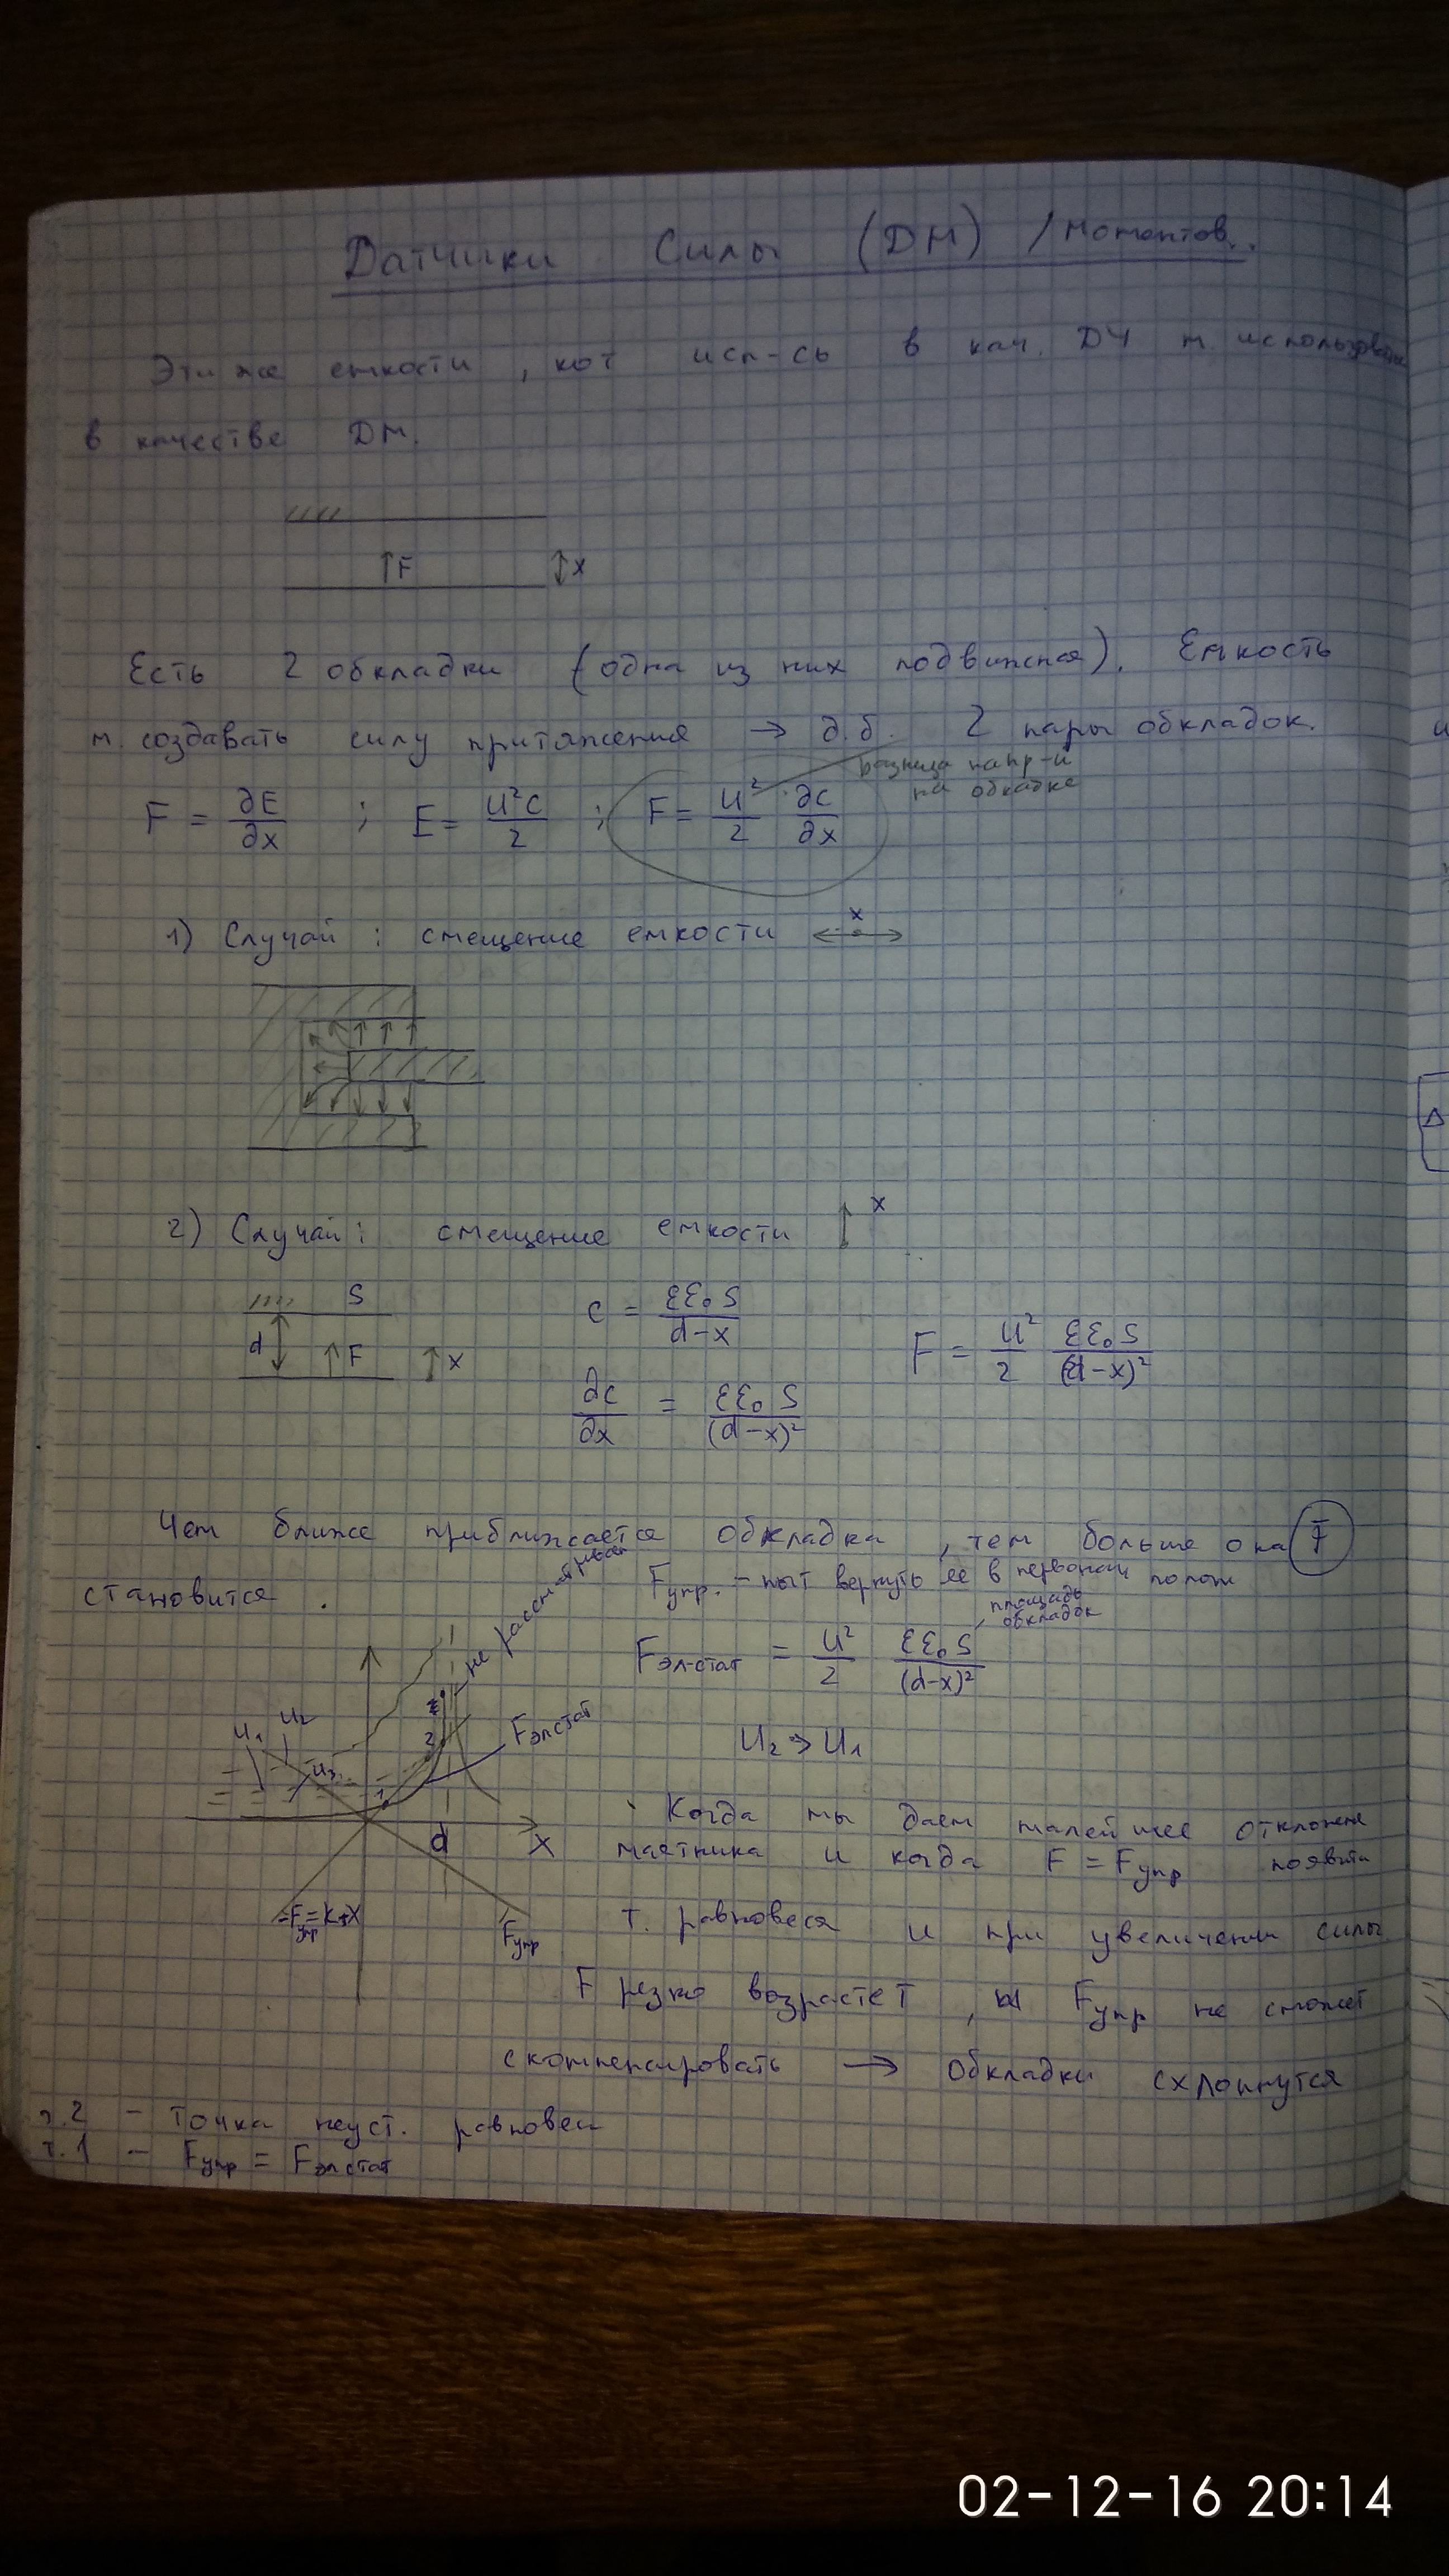 Датчики Силы (DM) / моментов.
Эти же емкости, кот исп-сь в кач. ДУ м. использовать
в качестве DM.
F
x
Есть 2 обкладки (одна из них подвижная). Емкость
м. создавать силу притяжения → д.б. 2 пары обкладок.
разница напр-й
на обкладке
F = ∂E/∂x ; E = U²C/2 ; F = U²/2 ∂C/∂x
1) Случай : смещение емкости ↔ x
2) Случай : смещение емкости ↕ x
S
d
F
x
C = εε₀S/(d-x)
F = U²/2 εε₀S/(d-x)²
∂C/∂x = εε₀S/(d-x)²
Чем ближе приближается обкладка, тем больше она F
становится.
Fупр. - пыт вернуть ее в первонач полож
площадь
обкладок
Fэл-стат = U²/2 εε₀S/(d-x)²
U₂ > U₁
не рассм-трив
U₁
U₂
U₃
1
2
Fэлстат
d
x
-Fупр = k·x
Fупр
Когда мы даем малейшее отклонен
маятника и когда F = Fупр появит
т. равновеся и при увеличении силы
F резко возрастет, и Fупр не сможет
скомпенсировать → обкладки схлопнутся
т.2 - точка неуст. равновеси
т.1 - Fупр = Fэлстат
02-12-16 20:14